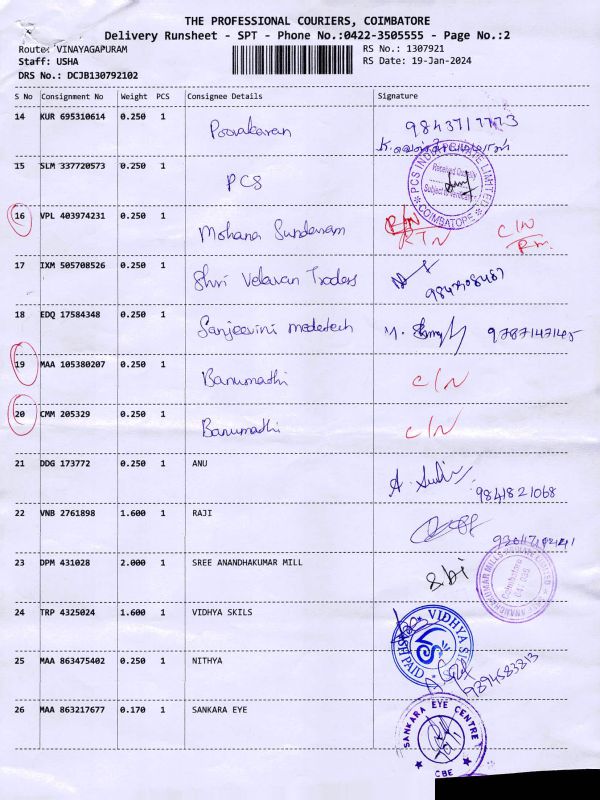 THE PROFESSIONAL COURIERS, COIMBATORE
Delivery Runsheet - SPT - Phone No.:0422-3505555 - Page No.:2
Route: VINAYAGAPURAM
RS No.: 1307921
Staff: USHA
RS Date: 19-Jan-2024
DRS No.: DCJB130792102
S No Consignment No Weight PCS Consignee Details Signature
14 KUR 695310614 0.250 1 Poovakaran
15 SLM 337720573 0.250 1 PCS
PCS INDIA PRIVATE LIMITED
COIMBATORE
16 VPL 403974231 0.250 1 Mohana Sundaram RTN C/N
17 IXM 505708526 0.250 1 Shri Velavan Traders
18 EDQ 17584348 0.250 1 Sanjeevini medetech 9787147145
19 MAA 105380207 0.250 1 Banumathi C/N
20 CMM 205329 0.250 1 Banumathi C/N
21 DDG 173772 0.250 1 ANU
9841821068
22 VNB 2761898 1.600 1 RAJI
23 DPM 431028 2.000 1 SREE ANANDHAKUMAR MILL
Coimbatore
641 035
24 TRP 4325024 1.600 1 VIDHYA SKILS
VIDHYA
PAID
25 MAA 863475402 0.250 1 NITHYA 9894583813
26 MAA 863217677 0.170 1 SANKARA EYE
SANKARA EYE CENTRE
CBE